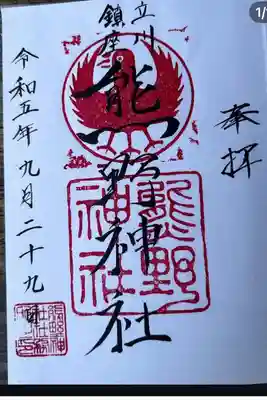 1/
奉拝
立川
鎮座
熊野神社
熊野
神社
令和五年九月二十九日